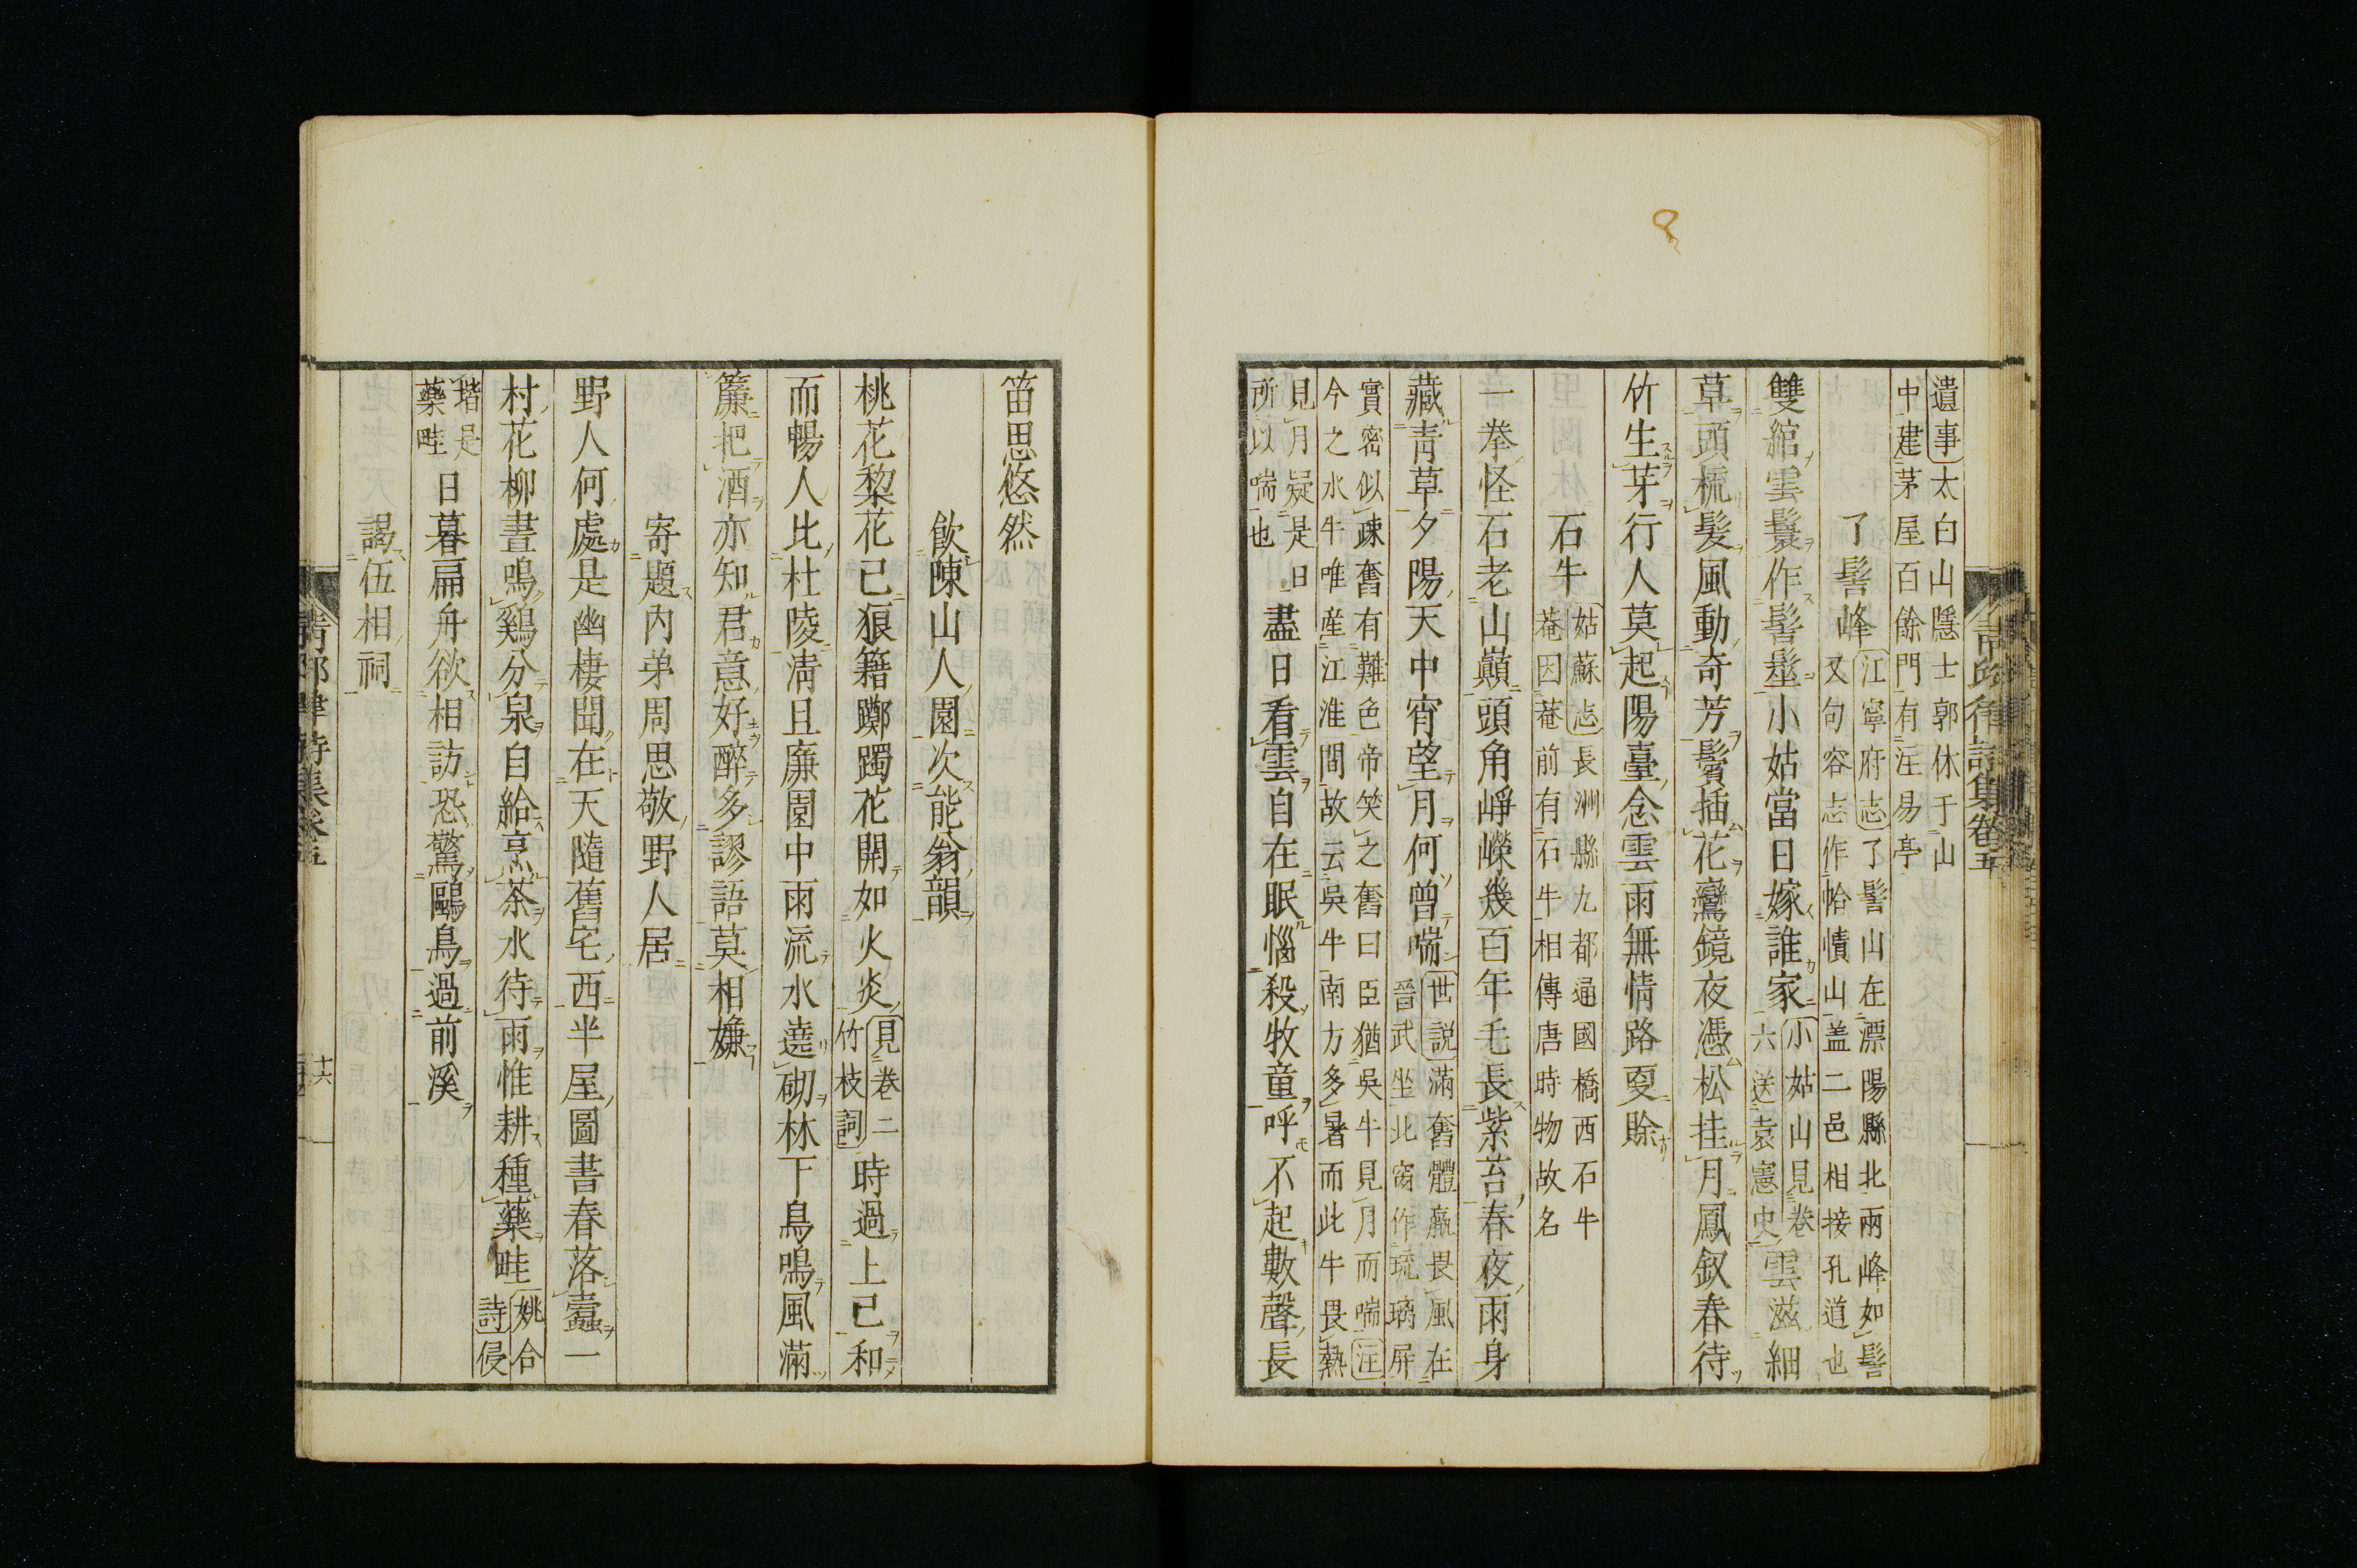 遺事太白山隱士郭休于山
中建茅屋百餘門有注易亭
了髻峰江寧府志了髻山在漂陽縣北兩峰如髻
又句容志作帢幘山盖二邑相接孔道也
雙綰雲鬟作髻鬟小姑當日嫁誰家小姑山見卷
六送袁憲史雲滋細
草頭梳髮風動奇芳鬢插花鸞鏡夜憑松挂月鳳釵春待
竹生芽行人莫起陽臺念雲雨無情路敻賒
石牛姑蘇志長洲縣九都逼國橋西石牛
菴因菴前有石牛相傳唐時物故名
一拳怪石老山巔頭角崢嶸幾百年毛長紫苔春夜雨身
藏青草夕陽天中宵望月何曾喘世説滿奮體羸畏風在
晉武坐北窗作琉璃屏
實密似疎奮有難色帝笑之奮曰臣猶吳牛見月而喘注
今之水牛唯産江淮間故云吳牛南方多暑而此牛畏熱
見月疑是日
所以喘也
盡日看雲自在眠惱殺牧童呼不起數聲長
笛思悠然
飲陳山人園次能翁韻
桃花黎花已狼籍躑躅花開如火炎見卷二
竹枝詞時過上已和
而暢人比杜陵清且廉園中雨流水遶砌林下鳥鳴風滿
簾把酒亦知君意好醉多謬語莫相嫌
寄題内弟周思敬野人居
野人何處是幽棲聞在天隨舊宅西半屋圖書春落蠹一
村花柳晝鳴鷄分泉自給烹茶水待雨惟耕種藥畦姚合
詩侵
堦是
藥畦日暮扁舟欲相訪恐驚鷗鳥過前溪
謁伍相祠
青邱律詩集卷五
十六